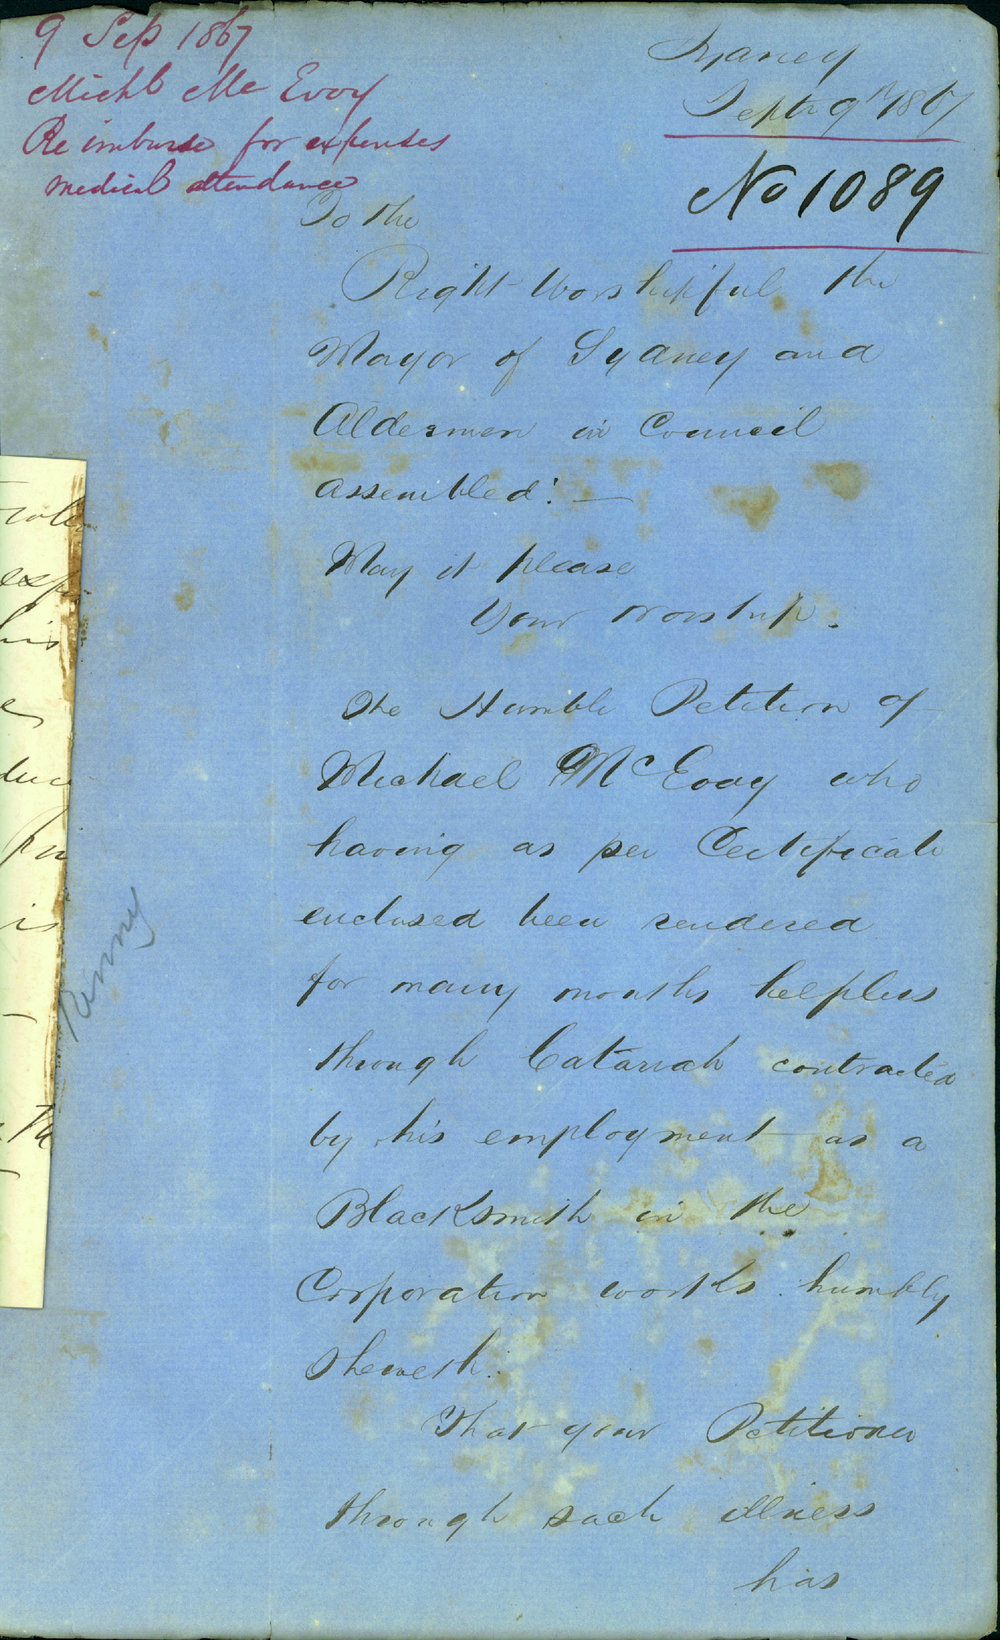 9 Sep 1867
Michl Mc Evoy
Re imburse for expenses
medical attendance
Sydney
Septr 9th 1867
No 1089
To the
Right Worshipful the
Mayor of Sydney and
Aldermen in Council
assembled! —
May it please
Your Worship.
The Humble Petition of
Michael McEvoy who
having as per Certificate
enclosed been rendered
for many months helpless
through Catarrah contracted
by his employment as a
Blacksmith in the
Corporation works humbly
sheweth.
That your Petitioner
through such illness
has
his
is